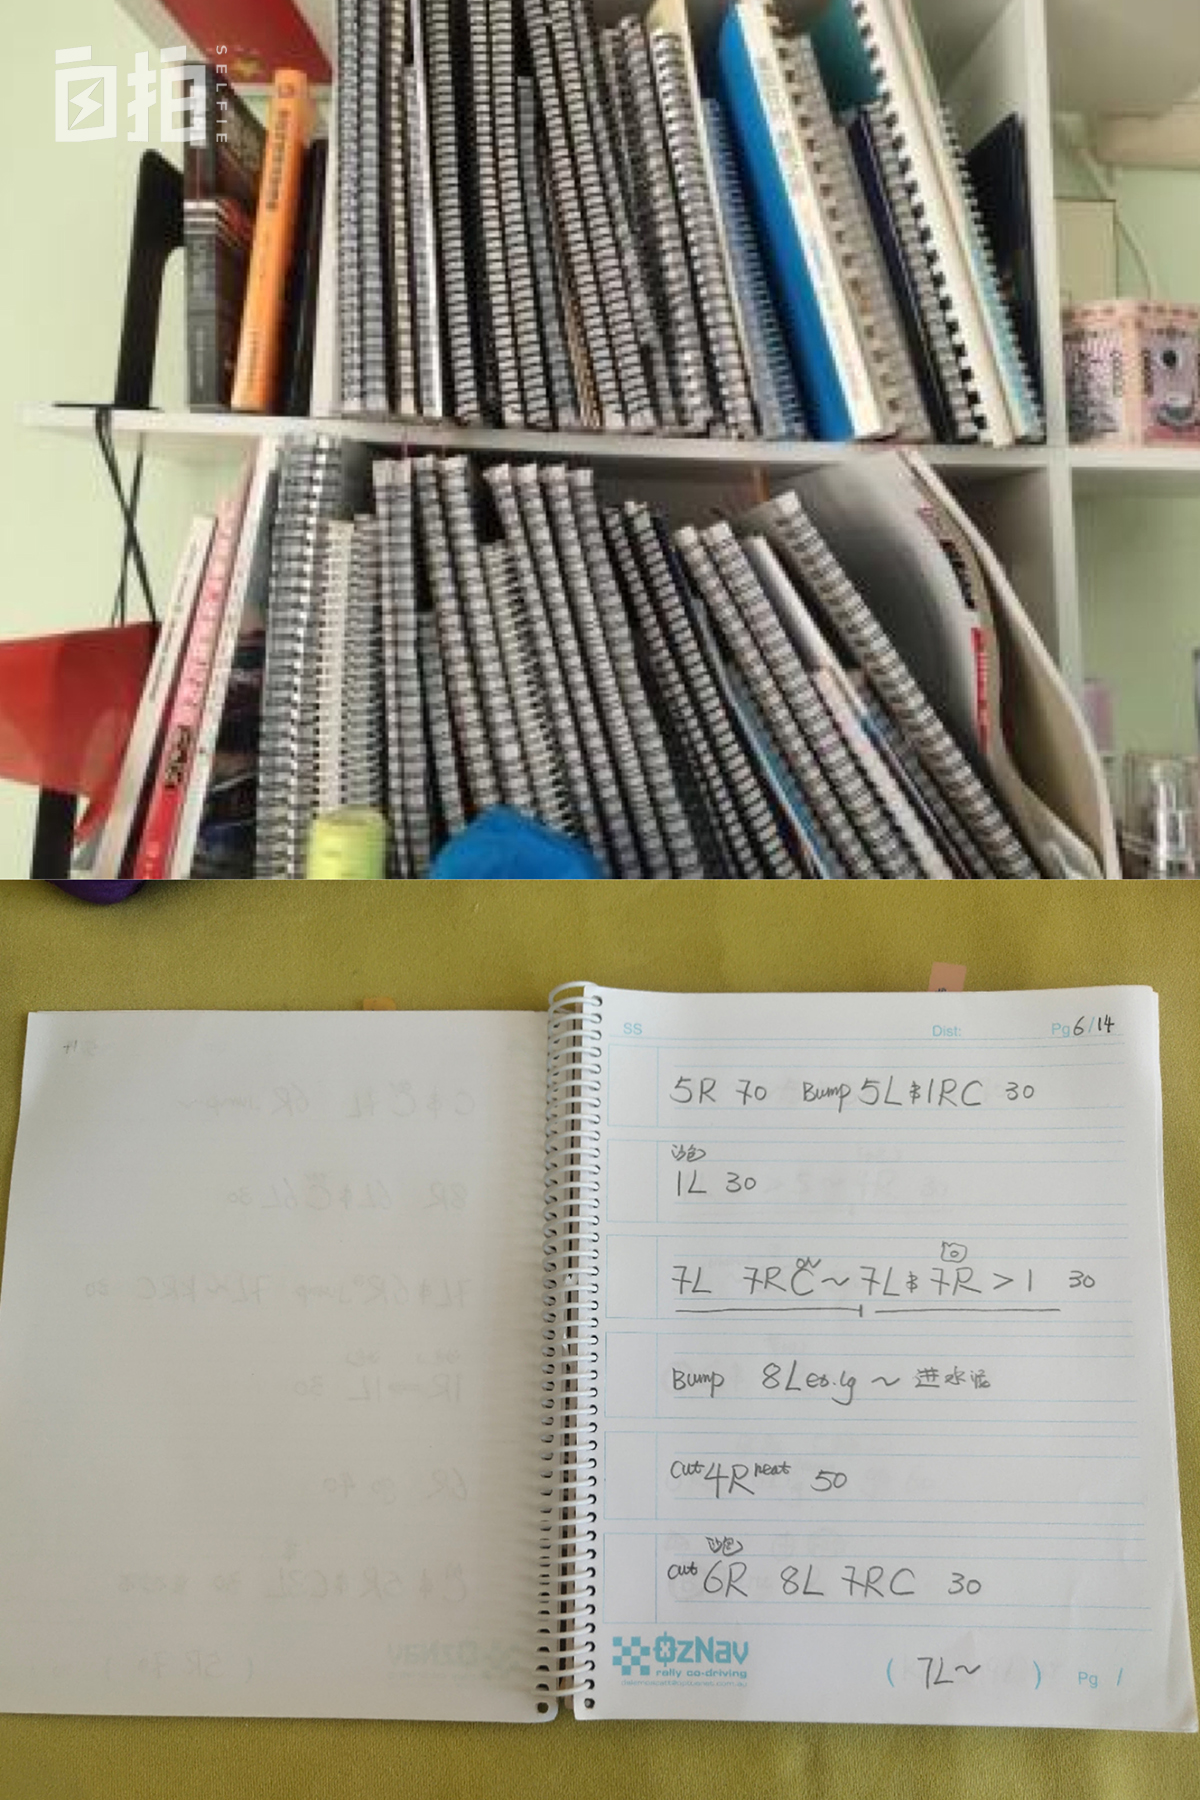 自拍
SELFIE
SS Dist: Pg 6/14
5R 70 Bump 5L & 1RC 30
沙包
1L 30
7L 7RC ~ 7L & 7R > 1 30
Bump 8L es.lg ~ 进水泥
cut 4R neat 50
沙包
cut 6R 8L 7RC 30
OzNav
rally co-driving
( 7L~ ) Pg /